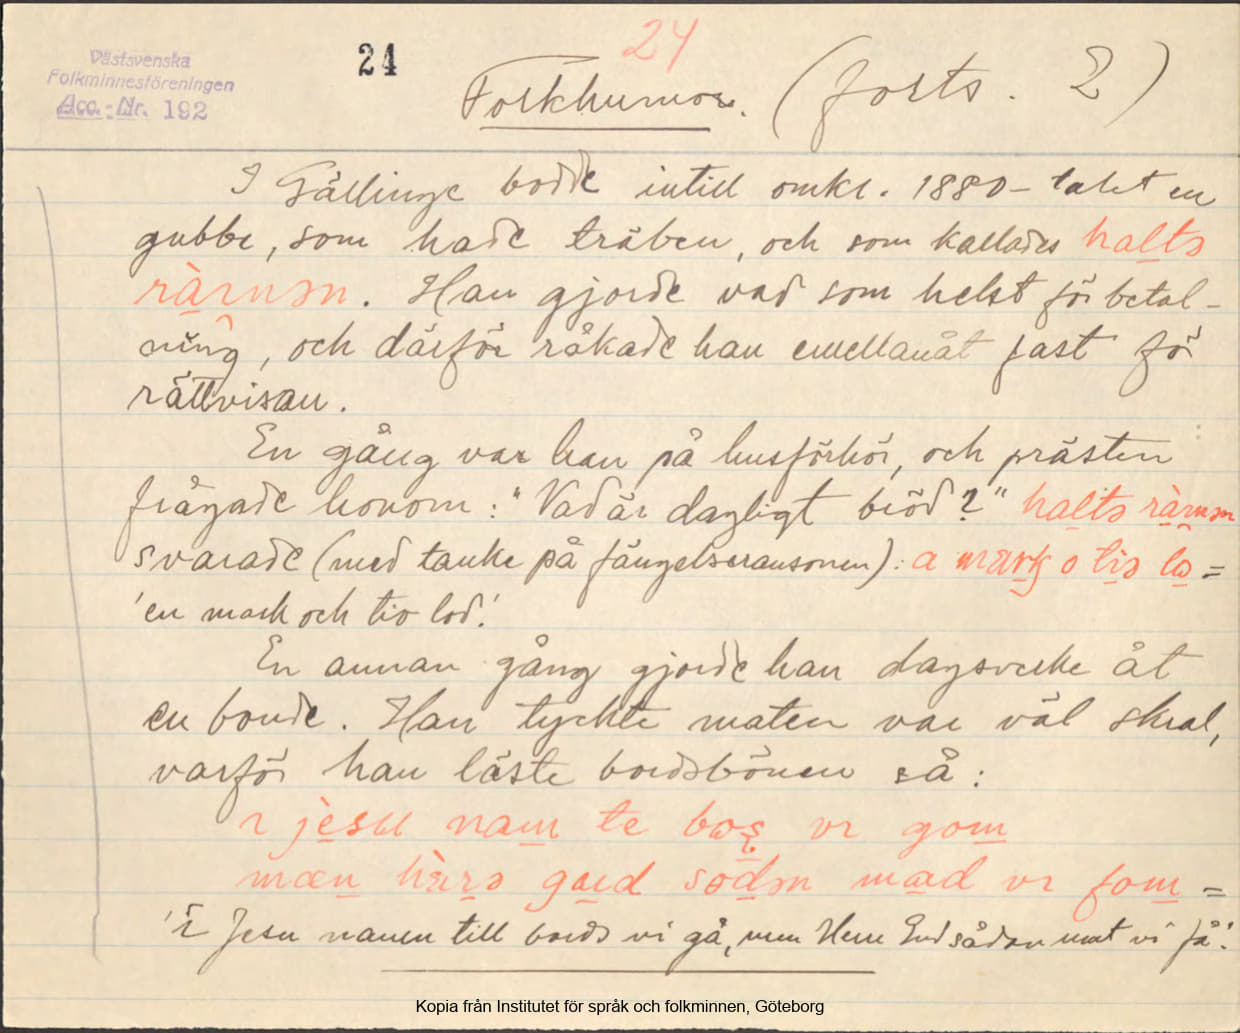 Västsvenska
Folkminnesföreningen
Acc.-Nr. 192
24
24
Folkhumor. (forts. 2)
I Gällinge bodde intill omkr. 1880-talet en
gubbe, som hade träben, och som kallades halts
ràrnən. Han gjorde vad som helst för betal-
ning, och därför råkade han emellanåt fast för
rättvisan.
En gång var han på husförhör, och prästen
frågade honom: "Vad är dagligt bröd?" halts ràrnən
svarade (med tanke på fängelseransonen): a mark o tiə lo =
'en mark och tio lod.'
En annan gång gjorde han dagsverke åt
en bonde. Han tyckte maten var väl skral,
varför han läste bordsbönen så:
ı jèsu nam te bos vı gom
mæn hæ̀rə gud sodən mad vı fom =
'I Jesu namn till bords vi gå, men Herre Gud sådan mat vi få'!
Kopia från Institutet för språk och folkminnen, Göteborg